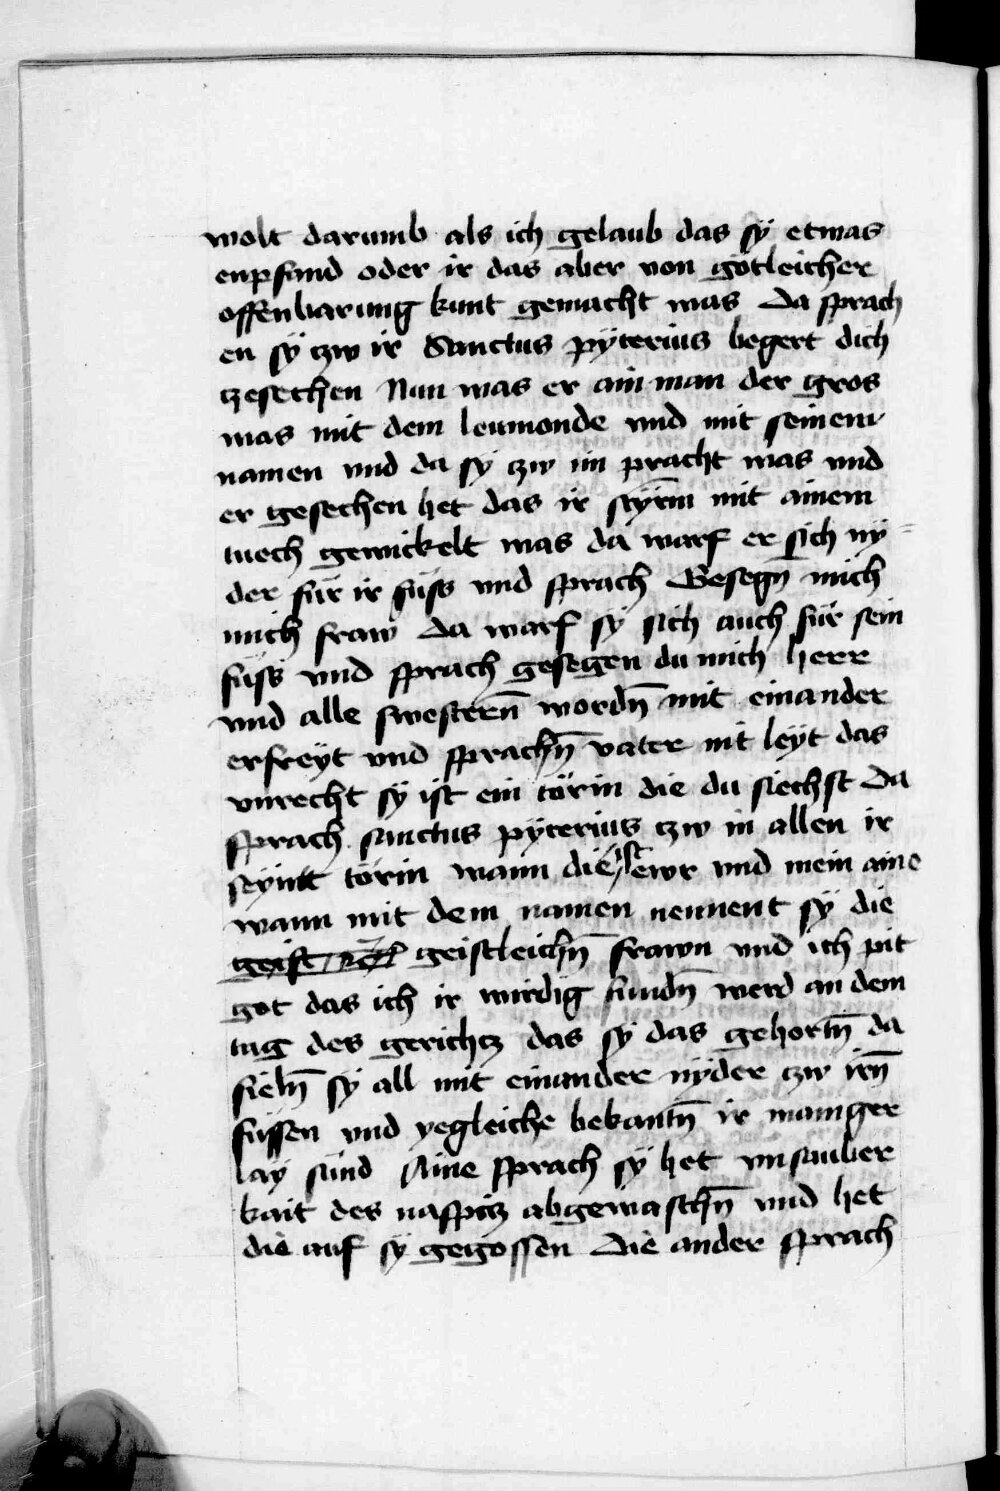 wolt darumb als ich gelaub das sÿ etwas
enpfand oder ir das aber von götleicher
offenbarung kunt gemacht was Da sprach
en sÿ tzw ir Sanctus pÿterius begert dich
tzesechen Nun was er ain man der gros
was mit dem leumonde vnd mit seinem
namen vnd da sÿ tzw im pracht was vnd
er gesechen het das ir styrn mit ainem
tuech gewickelt was da warf er sich nÿ-
der für ir füss vnd sprach Gesegn̄ mich
mich fraw Da warf sÿ sich auch für sein
füss vnd sprach gesegen du mich herr
vnd alle swestern̄ wordn̄ mit einander
erfreÿt vnd sprachn̄ vater nit leÿt das
vnrecht sÿ ist ein törin die du siechst Da
sprach sanctus pÿterius tzw in allen ir
seyntt törin wann die ist ewr vnd mein aine
wann mit dem namen nennent sÿ die
geist geistleichn̄ frawn vnd ich pit
got das ich ir wirdig fundn̄ werd an dem
tag des gerichtz das sÿ das gehortn̄ da
fieln̄ sÿ all mit einander nÿder tzw irn̄
füssen vnd yegleiche bekantn̄ ir maniger
lay sünd Aine sprach sÿ het vnsauber
kait des naspitz abgewaschn̄ vnd het
die auf sÿ gegossen Die ander sprach